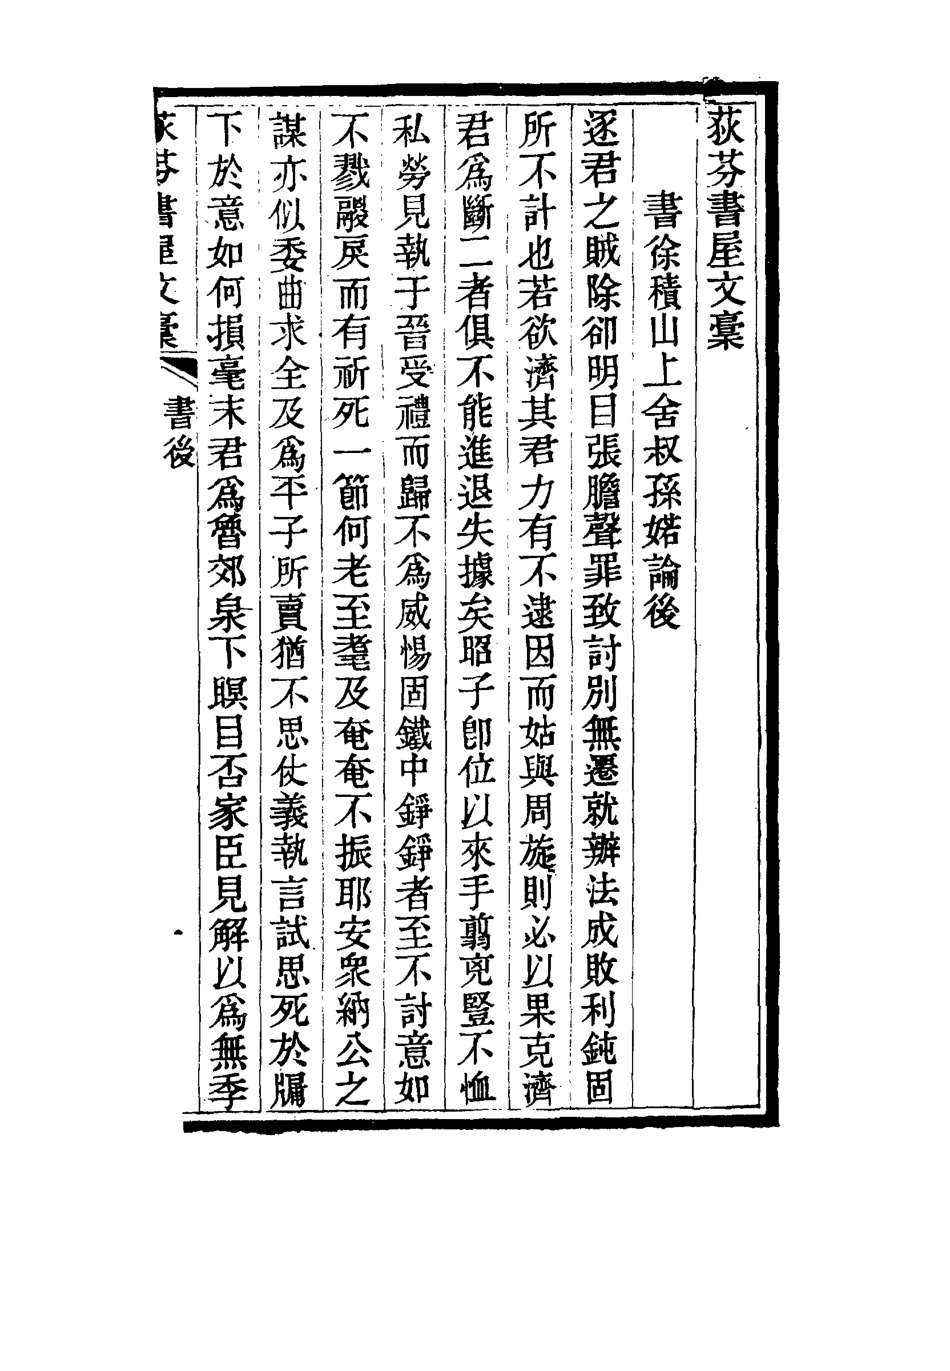 荻芬書屋文稾
書徐積山上舍叔孫婼論後
逐君之賊除卻明目張膽聲罪致討別無遷就辦法成敗利鈍固
所不計也若欲濟其君力有不逮因而姑與周旋則必以果克濟
君爲斷二者俱不能進退失據矣昭子卽位以來手翦兇豎不恤
私勞見執于晉受禮而歸不爲威惕固鐵中錚錚者至不討意如
不戮鬷戾而有祈死一節何老至耄及奄奄不振耶安衆納公之
謀亦似委曲求全及爲平子所賣猶不思仗義執言試思死於牖
下於意如何損毫末君爲魯郊泉下瞑目否家臣見解以爲無季
荻芬書屋文稾
書後